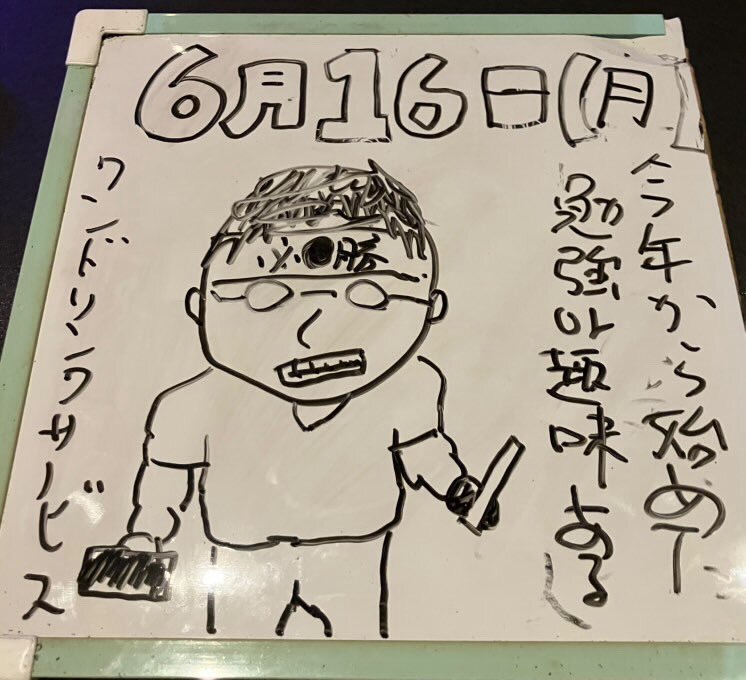 6月16日(月)
今年から始めた
勉強or趣味ある
必●勝
ワンドリンクサービス